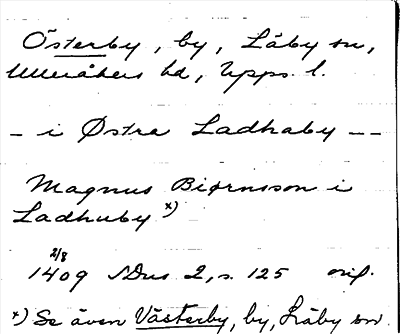 Österby, by, Läby sn,
Ulleråkers hd, Upps. l.
– i Østra Ladhaby – –
Magnus Biørnsson i
Ladhuby x)
2/8
1409 SDns 2, s. 125 orig.
x) Se även Västerby, by, Läby sn.